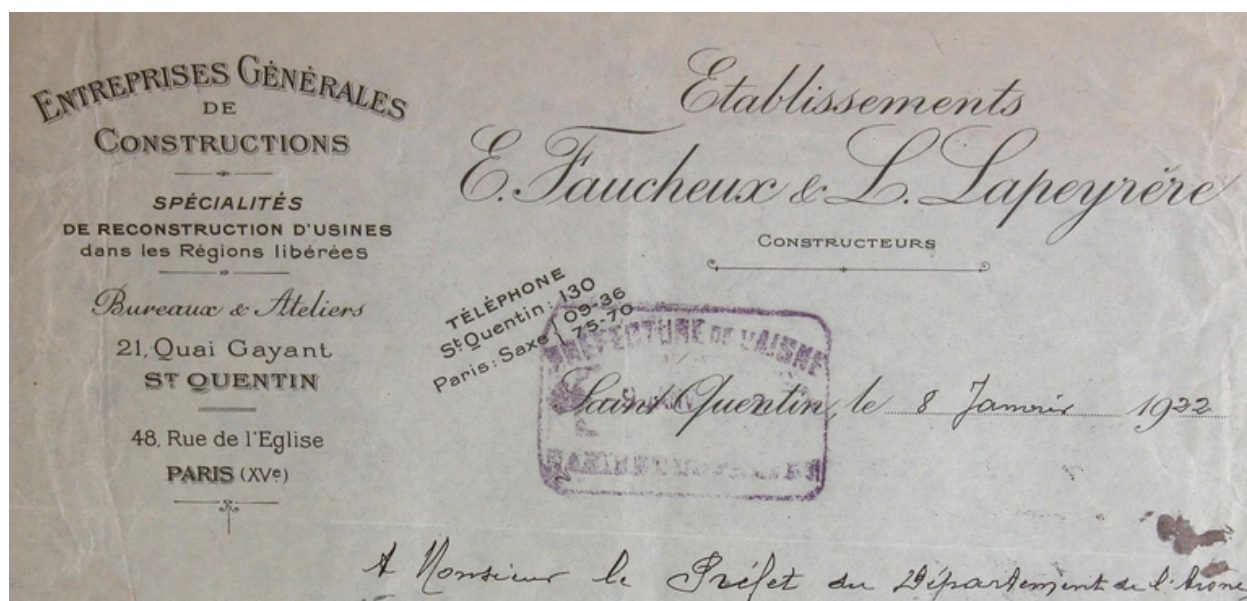 ENTREPRISES GÉNÉRALES
DE
CONSTRUCTIONS
SPÉCIALITÉS
DE RECONSTRUCTION D'USINES
dans les Régions libérées
Bureaux & Ateliers
21, Quai Gayant
ST QUENTIN
48, Rue de l'Eglise
PARIS (XVe)
Etablissements
E. Faucheux & L. Lapeyrère
CONSTRUCTEURS
TÉLÉPHONE
St Quentin: 130
Paris: Saxe 09-36
75-70
PRÉFECTURE DE L'AISNE
Saint Quentin, le 8 Janvier 1922
A Monsieur le Préfet du Département de l'Aisne